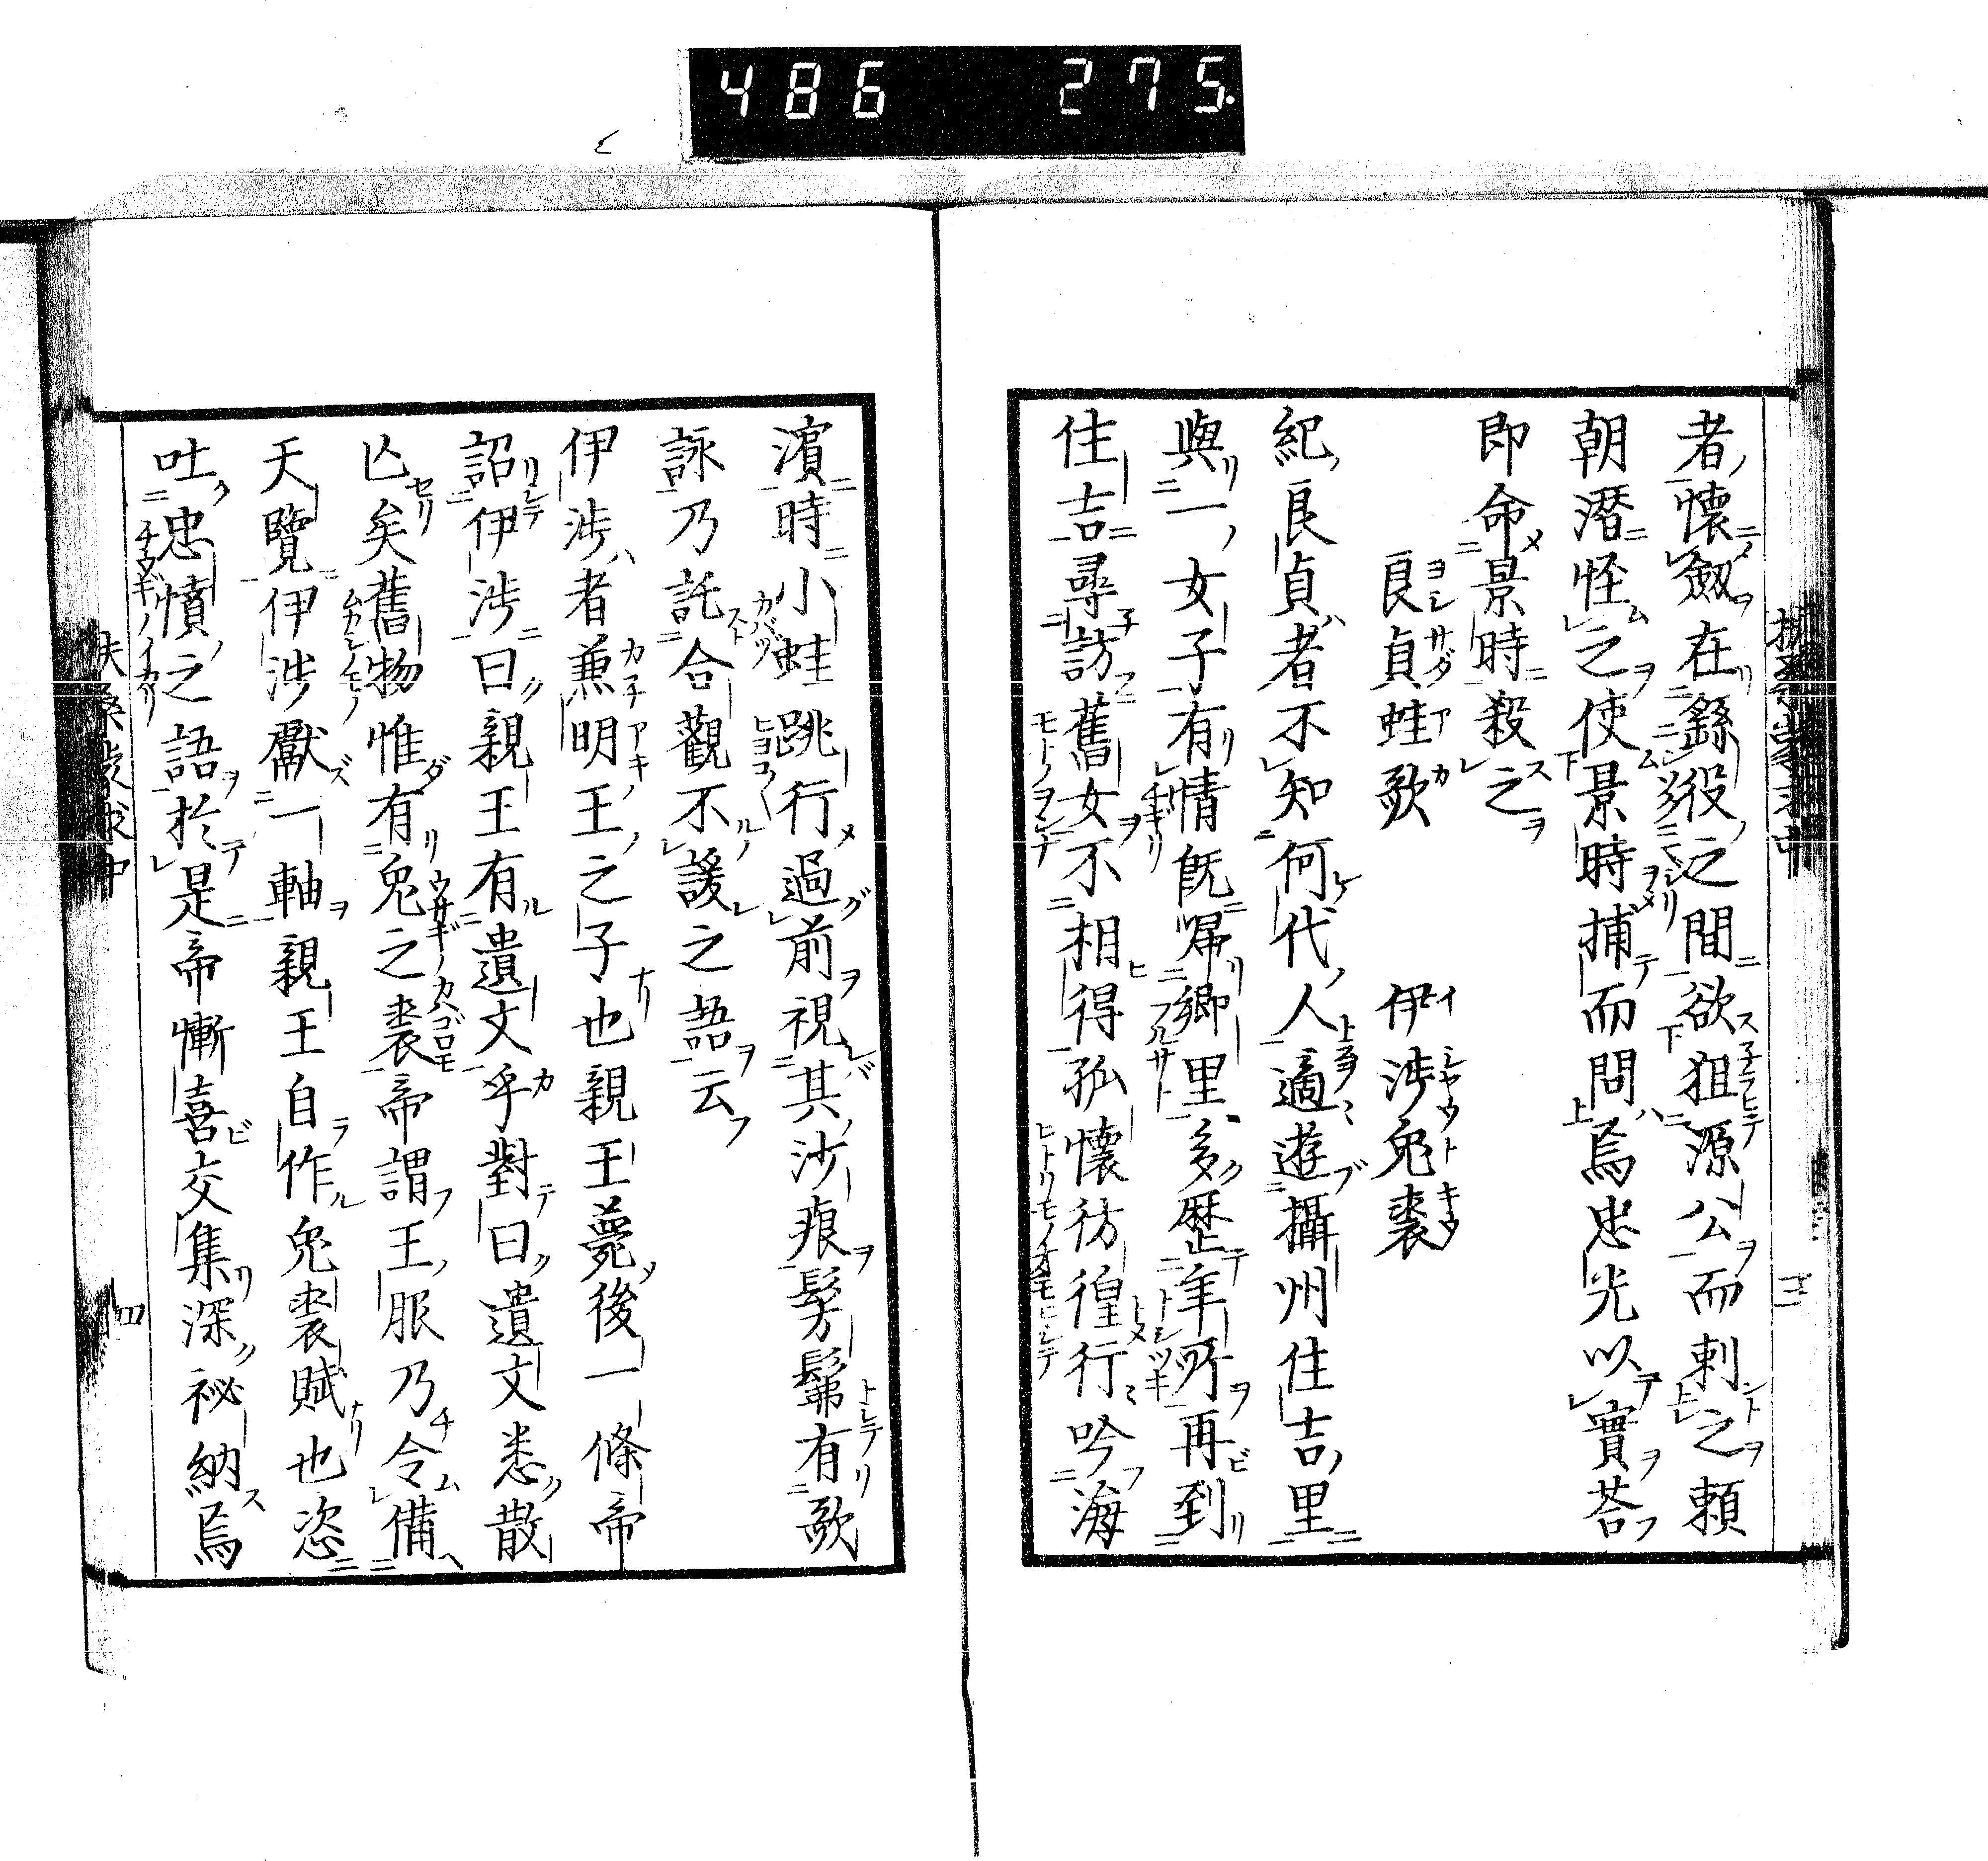 486 275.
者懷劔在繇役之間欲狙源公而刺之頼
朝潛怪之使景時捕而問焉忠光以實荅
即命景時殺之
良貞蛙歌 伊渉兔裘
紀良貞者不知何代人適遊攝州住吉里
與一女子有情既歸鄉里多歷年所再到
住吉尋訪舊女不相得孤懷彷徨行吟海
濵時小蛙跳行過前視其沙痕髣髴有歌
詠乃託合觀不諼之語云
伊渉者兼明王之子也親王薨後一條帝
詔伊渉曰親王有遺文乎對曰遺文悉散
亾矣舊物惟有兔之裘帝謂王服乃令備
天覽伊渉獻一軸親王自作兔裘賦也恣
吐忠憤之語於是帝慚喜交集深祕納焉
扶桑蒙求中 四